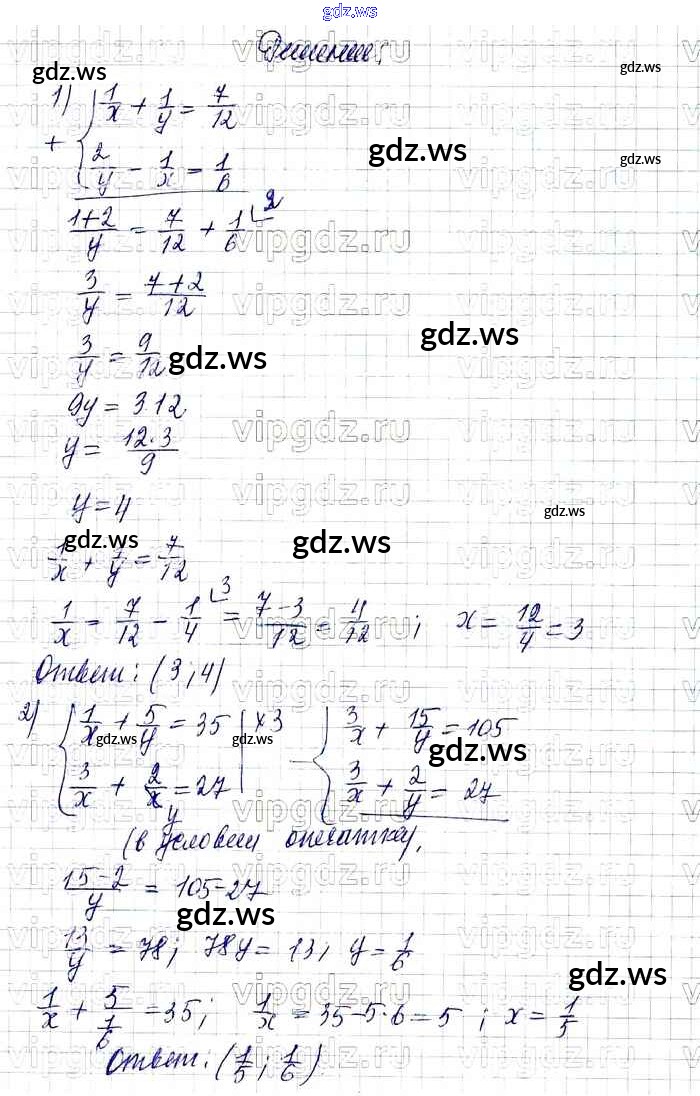 gdz.ws
Решение.
gdz.ws gdz.ws
1) { 1/x + 1/y = 7/12
gdz.ws gdz.ws
+ { 2/y - 1/x = 1/6
(1+2)/y = 7/12 + 1/6 ⌞2
3/y = (7+2)/12
gdz.ws
3/y = 9/12 gdz.ws
9y = 3·12
y = (12·3)/9
y = 4
gdz.ws gdz.ws gdz.ws
1/x + 1/y = 7/12
1/x = 7/12 - 1/4 ⌞3 = (7-3)/12 = 4/12 ; x = 12/4 = 3
Ответ: (3; 4)
2) { 1/x + 5/y = 35 | ×3 { 3/x + 15/y = 105
gdz.ws gdz.ws gdz.ws
{ 3/x + 2/x = 27 | { 3/x + 2/y = 27
y
(в условии опечатка),
(15-2)/y = 105-27
gdz.ws
13/y = 78; 78y = 13, y = 1/6
gdz.ws
1/x + 5/(1/6) = 35; 1/x = 35-5·6 = 5 ; x = 1/5
Ответ: (1/5; 1/6)